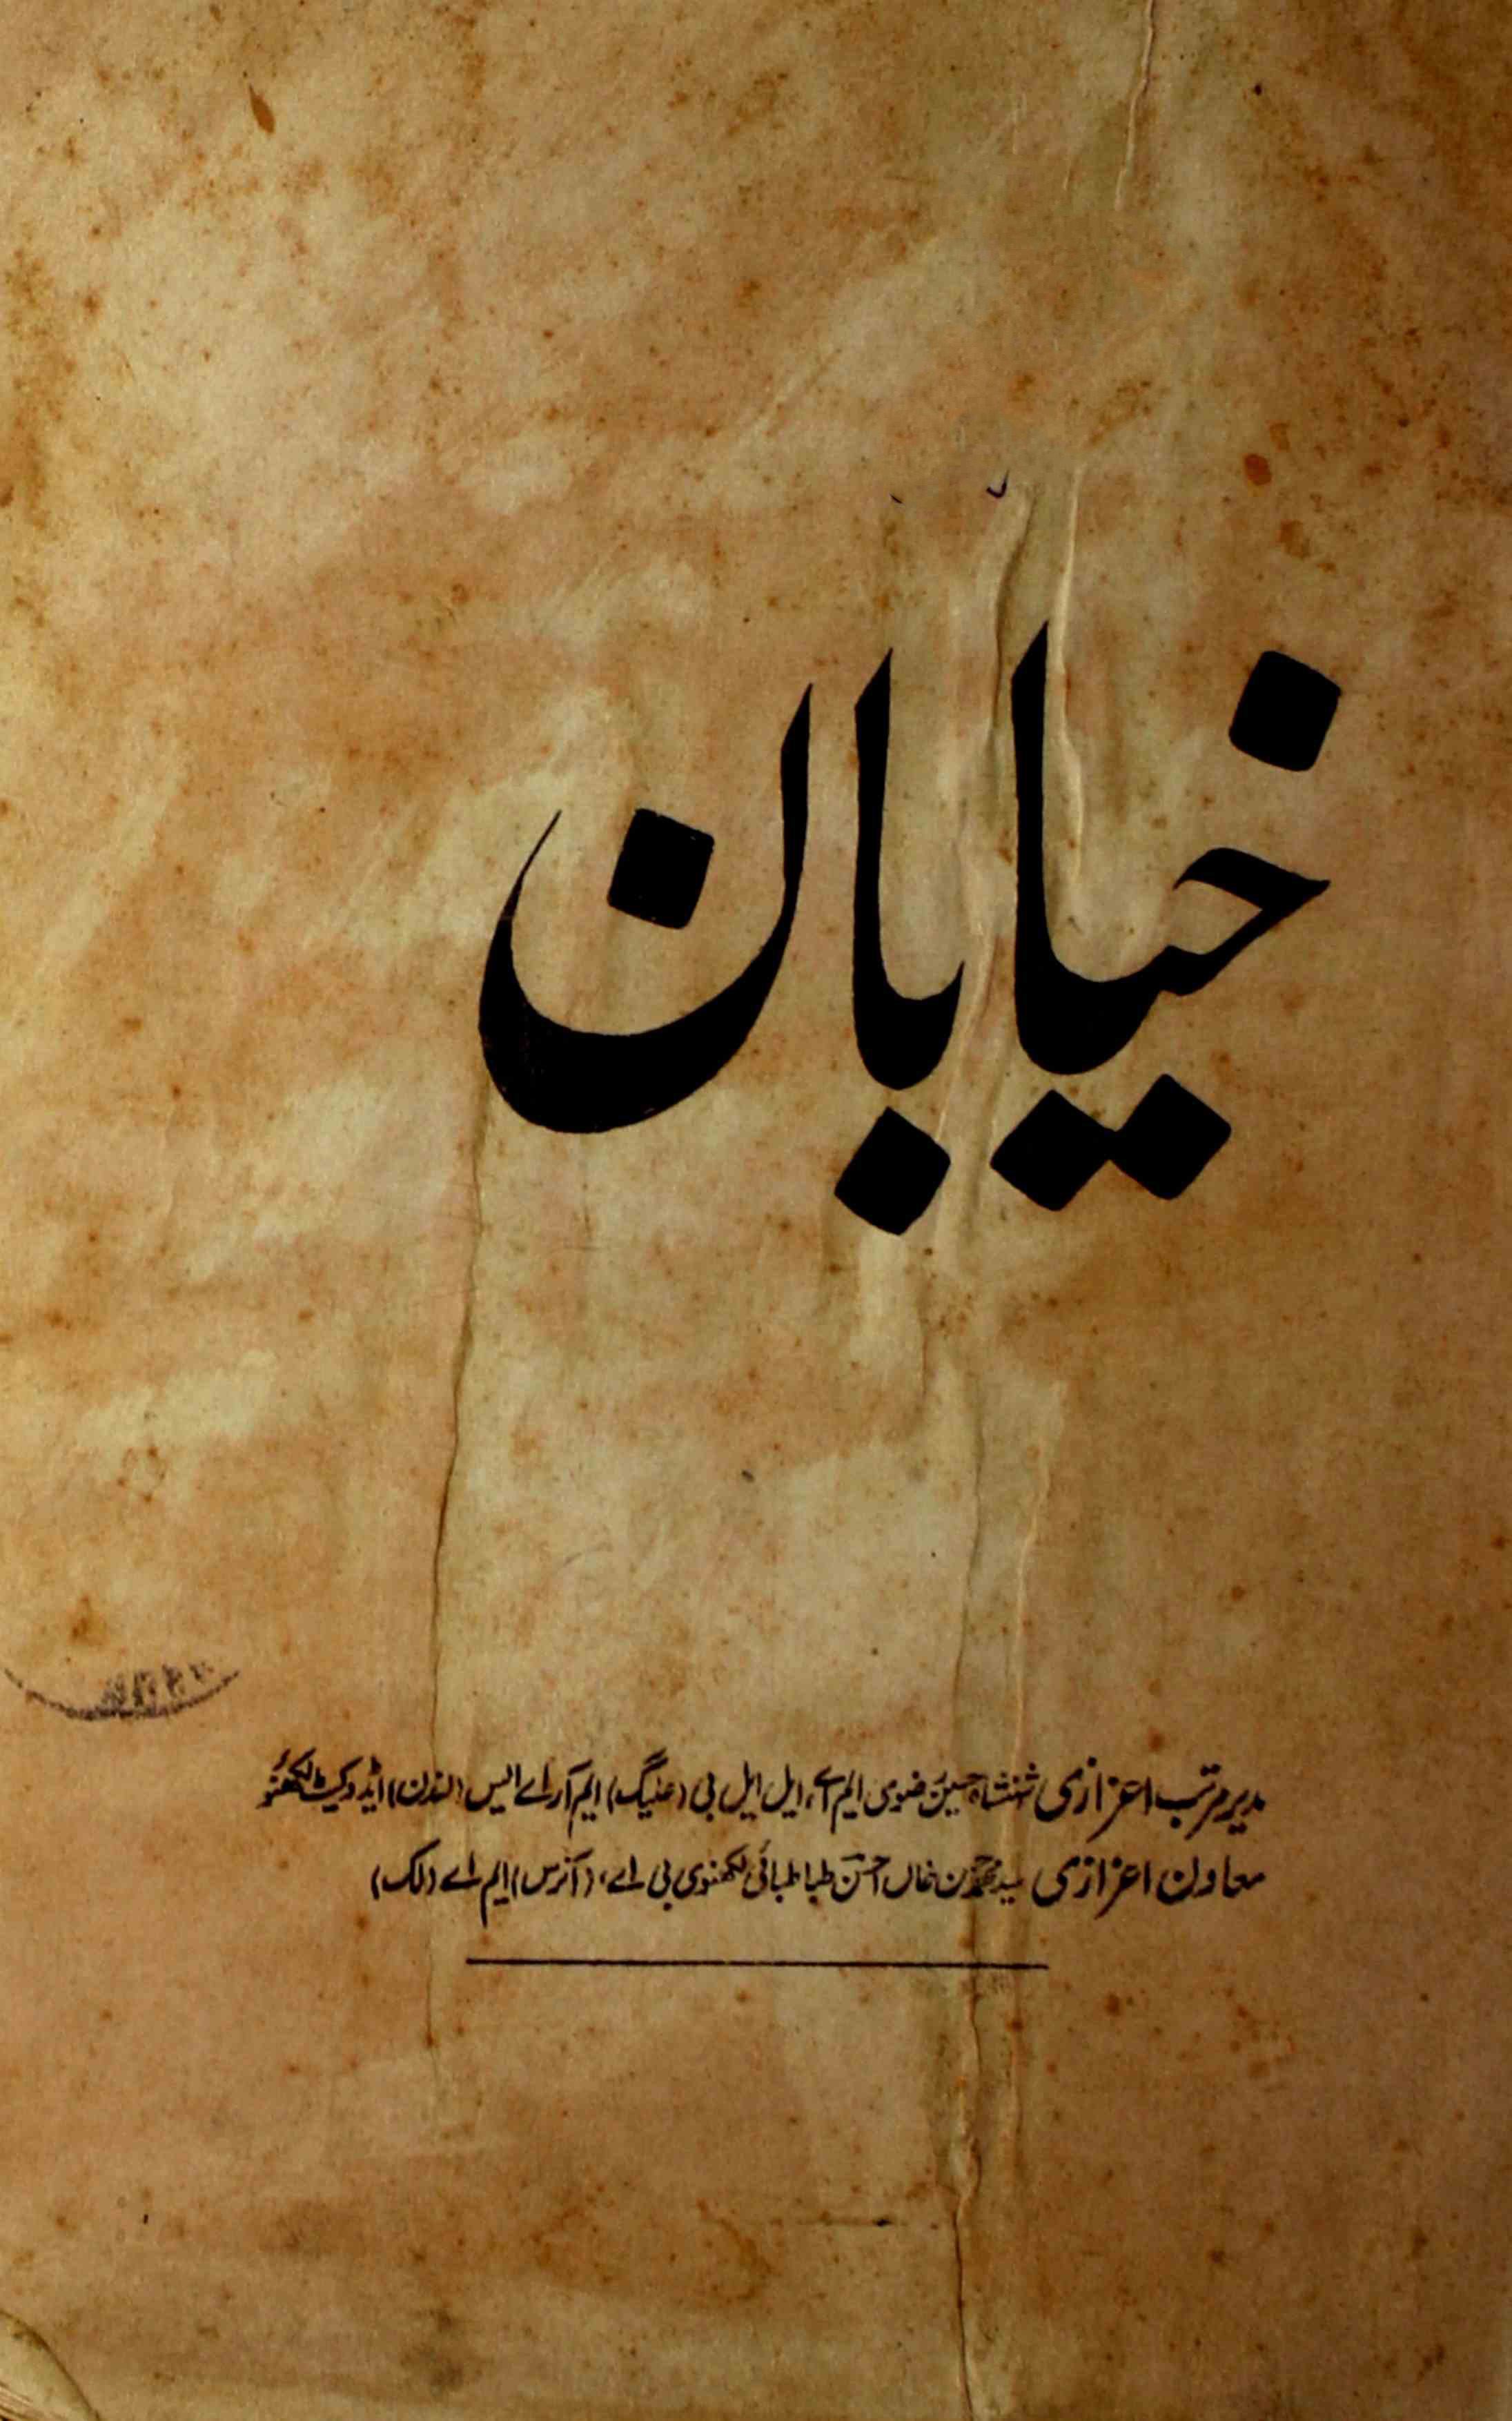 خیابان
مدیر مرتب اعزازی شہنشاہ حسین رضوی ایم اے، ایل ایل بی (علیگ) ایم آر اے ایس (لندن) ایڈوکیٹ لکھنؤ
معاون اعزازی سید خاں احسن طباطبائی لکھنوی بی اے، (آنرس) ایم اے (لک)